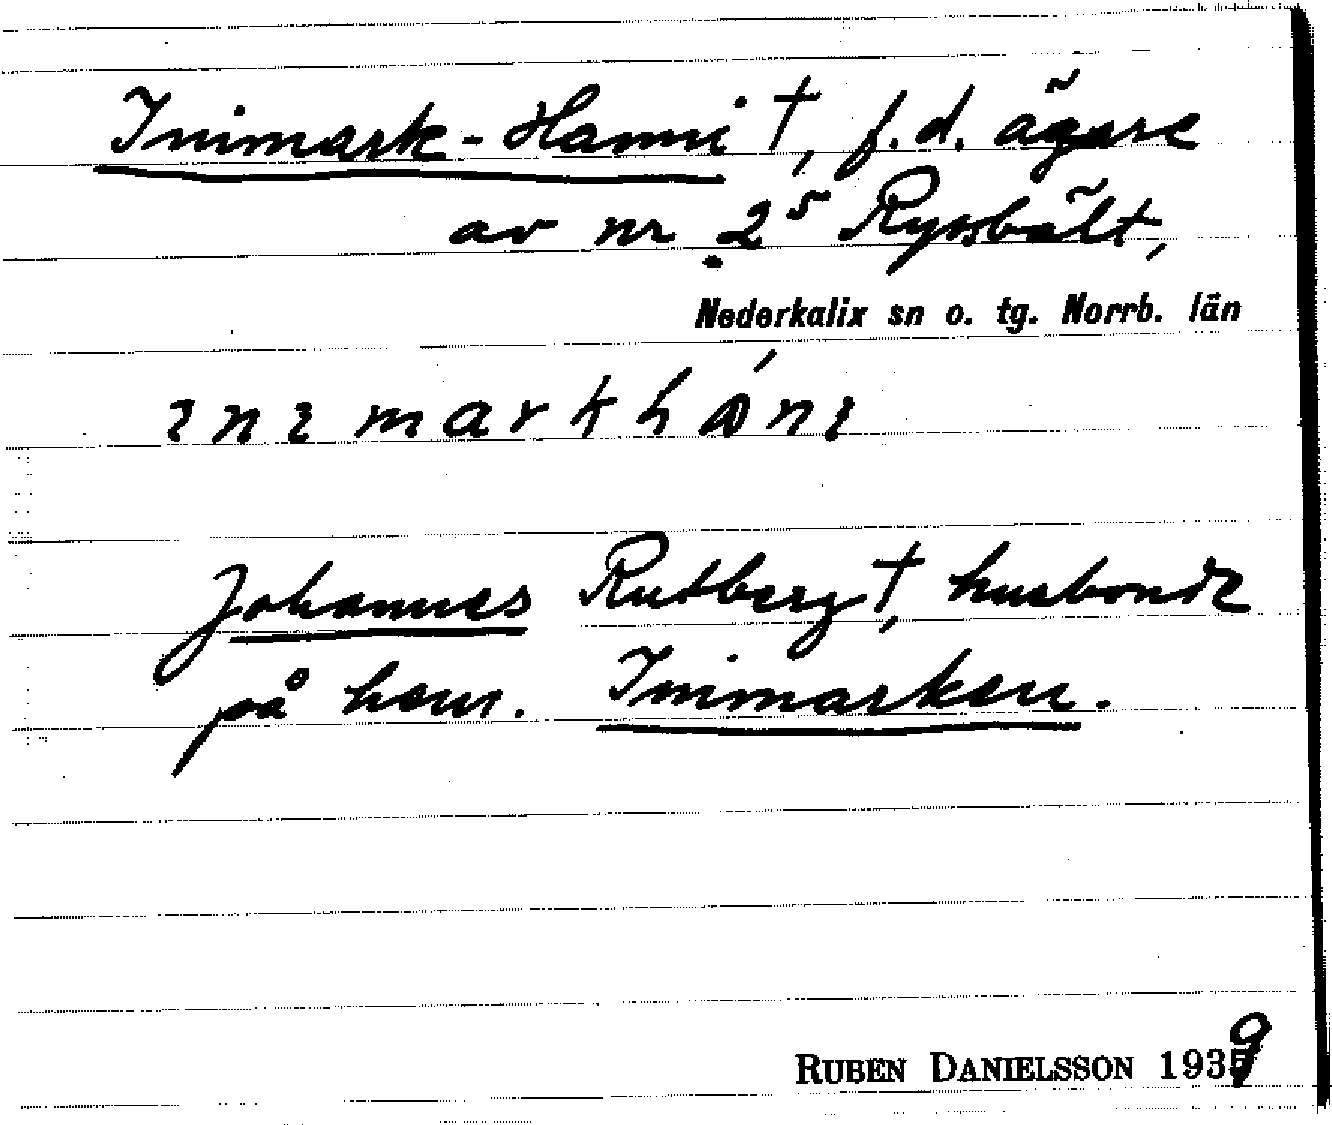 Inimark-Hanni †, f.d. ägare
av nr 2⁵ Ryssbält,
Nederkalix sn o. tg. Norrb. län
ɪnɪmarkhánɪ
Johannes Rutberg †, husbonde
på hem. Inimarken.
RUBEN DANIELSSON 1939